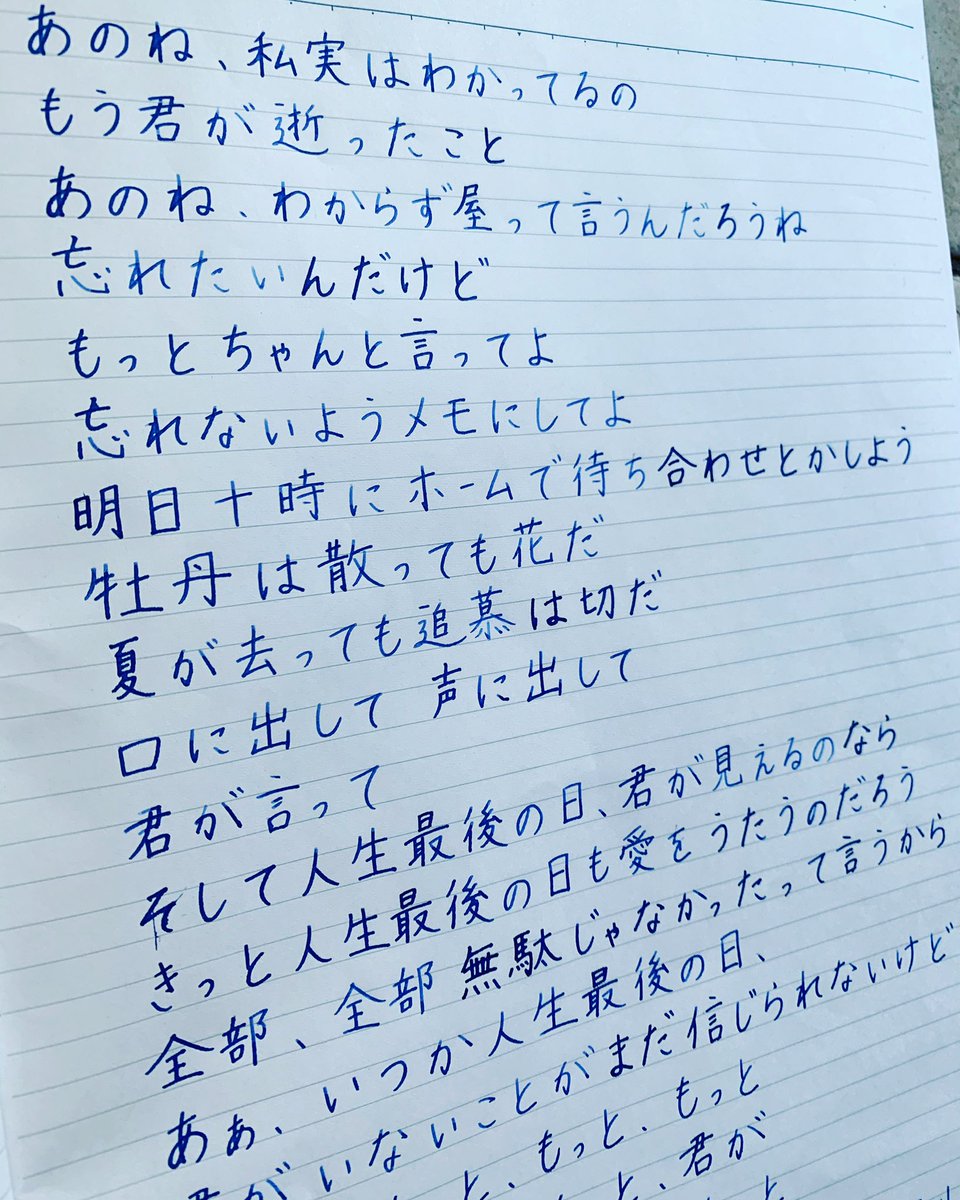 あのね、私実はわかってるの
もう君が逝ったこと
あのね、わからず屋って言うんだろうね
忘れたいんだけど
もっとちゃんと言ってよ
忘れないようメモにしてよ
明日十時にホームで待ち合わせとかしよう
牡丹は散っても花だ
夏が去っても追慕は切だ
口に出して 声に出して
君が言って
そして人生最後の日、君が見えるのなら
きっと人生最後の日も愛をうたうのだろう
全部、全部無駄じゃなかったって言うから
あぁ、いつか人生最後の日、
君がいないことがまだ信じられないけど
と、もっと、もっと
と、君が